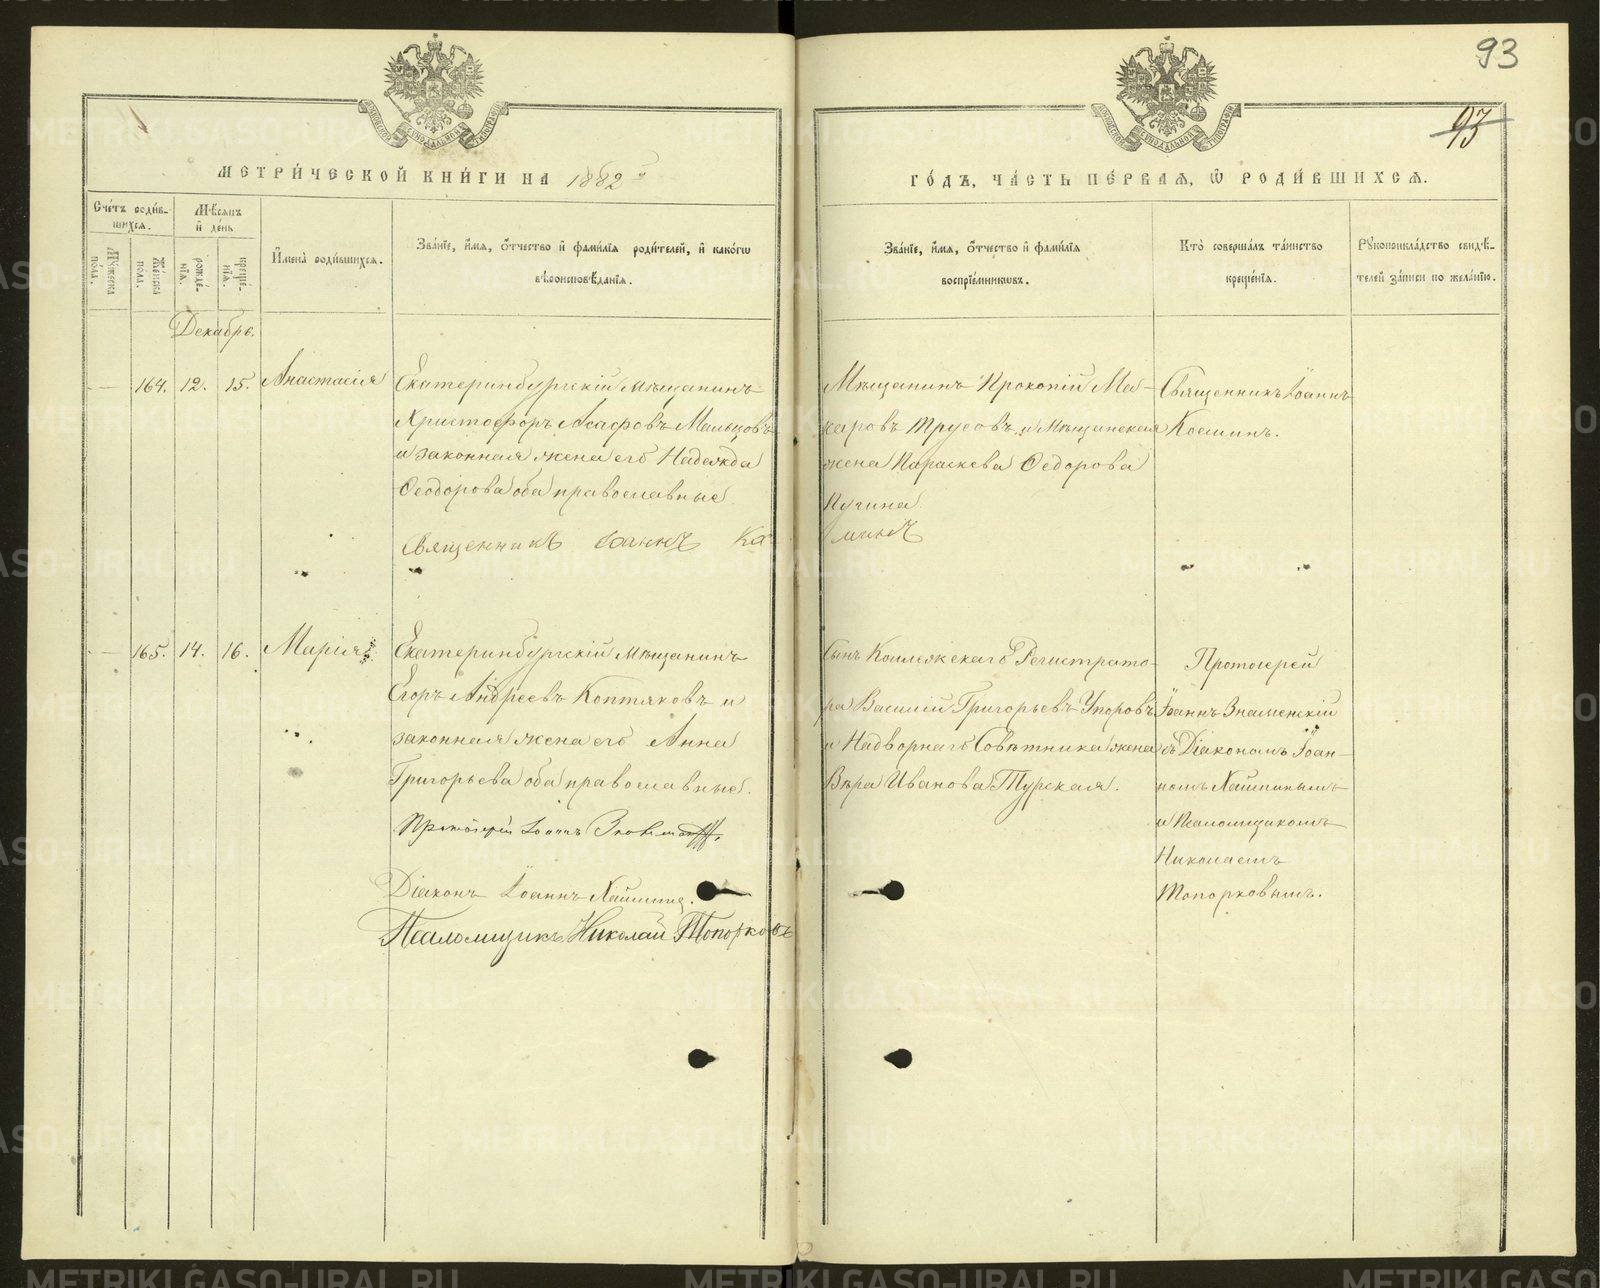 93
93
МЕТРИ́ЧЕСКОЙ КНИ́ГИ НА 1882й
ГО́ДЪ, ЧА́СТЬ ПЕ́РВАЯ, Ѡ РОДИ́ВШИХСЯ.
Сче́тъ роди́в-
шихся.
Му́жеска по́ла.
Же́нска по́ла.
Мѣ́сяцъ
и҆ де́нь
рожде́-
нїя.
креще́-
нїя.
И҆мена̀ роди́вшихся.
Зва́нїе, и҆́мя, ѻ҆́тчество и҆ фами́лїя роди́телей, и҆ како́гѡ
вѣроисповѣ́данїя.
Зва́нїе, и҆́мя, ѻ҆́тчество и҆ фами́лїя
воспрїе́мникѡвъ.
Кто̀ соверша́лъ та́инство
креще́нїя.
Рꙋкоприкла́дство свидѣ́-
телей за́писи по жела́нїю.
Декабрь.
— 164. 12. 15. Анастасія
Екатеринбургскій мѣщанинъ
Христофоръ Асафовъ Мальцовъ
и законная жена его Надежда
Ѳеодорова оба православные
Священникъ Іоаннъ Ко
Мѣщанинъ Прокопій Ма-
каровъ Трусовъ и мѣщанская
жена Параскева Ѳедорова
Пугина
шинъ
Священникъ Іоаннъ
Кошинъ.
— 165. 14. 16. Марія
Екатеринбургскій мѣщанинъ
Егоръ Андреевъ Коптяковъ и
законная жена его Анна
Григорьева оба православные.
Протоіерей Іоаннъ Знаменскій
Діаконъ Іоаннъ
Псаломщикъ Николай Топорковъ
Сынъ Коллежскаго Регистрато-
ра Василій Григорьевъ Упоровъ
и Надворнаго Совѣтника жена
Вѣра Иванова Турская.
Протоіерей
Іоаннъ Знаменскій
съ Діакономъ Іоан-
номъ
и Псаломщикомъ
Николаемъ
Топорковымъ.
METRIKI.GASO-URAL.RU